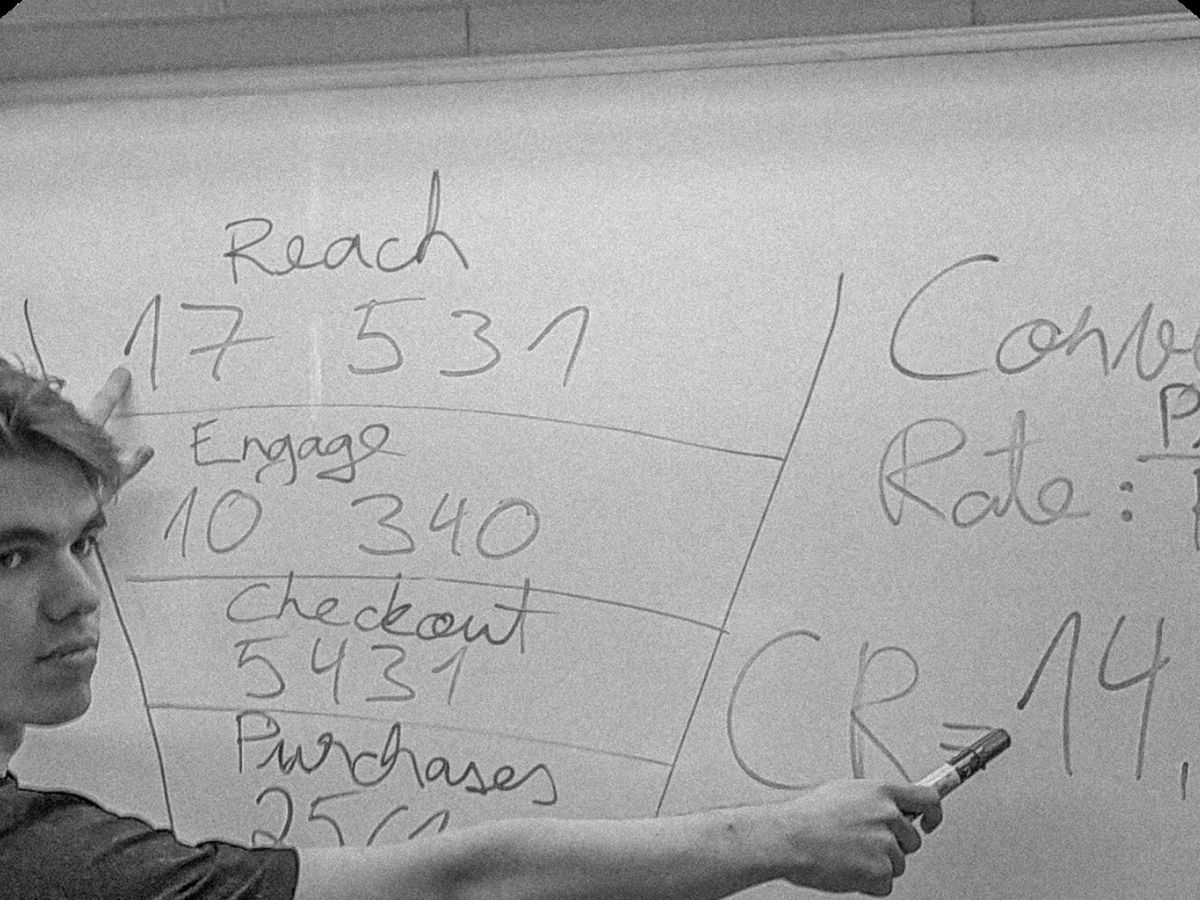 Reach
17 531
Engage
10 340
Checkout
5431
Purchases
Rate:
CR = 14,